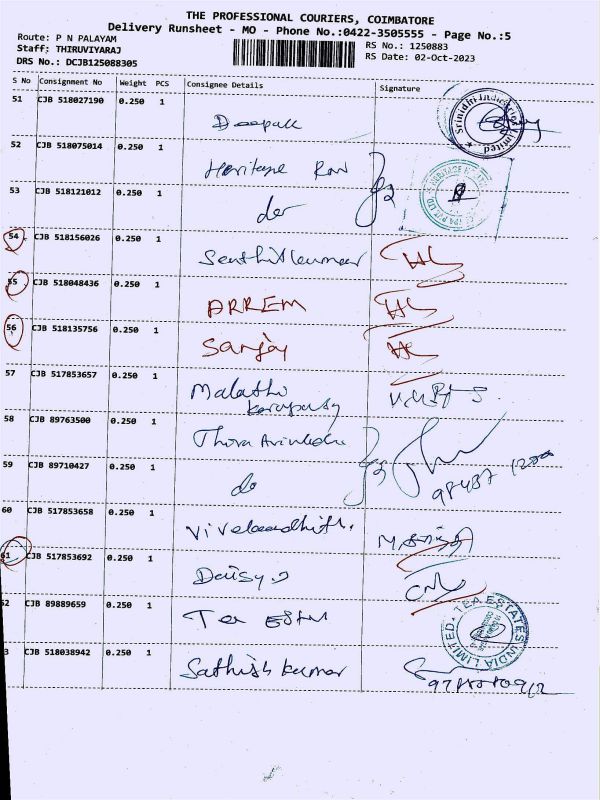 THE PROFESSIONAL COURIERS, COIMBATORE
Delivery Runsheet - MO - Phone No.:0422-3505555 - Page No.:5
Route: P N PALAYAM
RS No.: 1250883
Staff: THIRUVIYARAJ
RS Date: 02-Oct-2023
DRS No.: DCJB125088305
S No Consignment No Weight PCS Consignee Details Signature
51 CJB 518027190 0.250 1 Deepak
Srinidhi Industries Limited
52 CJB 518075014 0.250 1 Heritage
53 CJB 518121012 0.250 1 do
54 CJB 518156026 0.250 1 Senthilkumar
55 CJB 518048436 0.250 1 ARREM
56 CJB 518135756 0.250 1 Sanjay
57 CJB 517853657 0.250 1 Malathi
58 CJB 89763500 0.250 1
59 CJB 89710427 0.250 1 do
60 CJB 517853658 0.250 1
61 CJB 517853692 0.250 1 Daisy
62 CJB 89889659 0.250 1 Tea
TEA ESTATES INDIA LIMITED
3 CJB 518038942 0.250 1 Sathish kumar